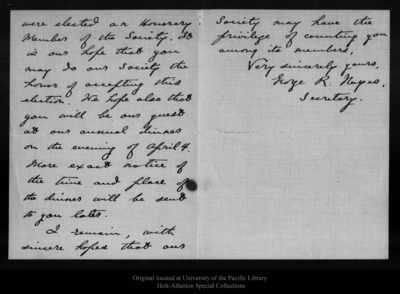 were elected an Honorary
Member of the Society. It
is our hope that you
may do our Society the
honor of accepting this
election. We hope also that
you will be our guest
at our annual dinner
on the evening of April 4.
More exact notice of
the time and place of
the dinner will be sent
to you later.
I remain, with
sincere hopes that our
Society may have the
privilege of counting you
among its members,
Very sincerely yours,
George R. Noyes,
Secretary.
Original located at University of the Pacific Library
Holt-Atherton Special Collections